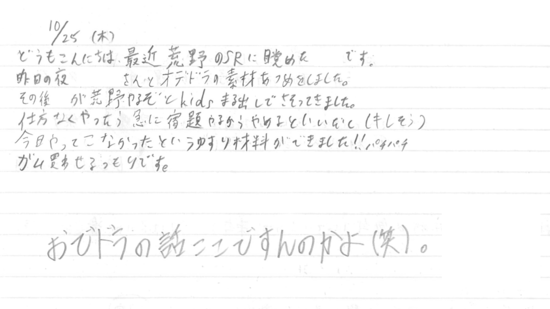 10/25 (木)
どうもこんにちは、最近荒野のSRに目覚めた です。
昨日の夜 さんとオデドラの素材あつめをしました。
その後 が荒野やるぞとkidsまる出しでさそってきました。
仕方なくやったら急に宿題やるからやめるといいなと(キレそう)
今日やってこなかったというゆすり材料ができました!!パチパチ
ガム買わせるつもりです。
おでドラの話ここですんのかよ(笑)。